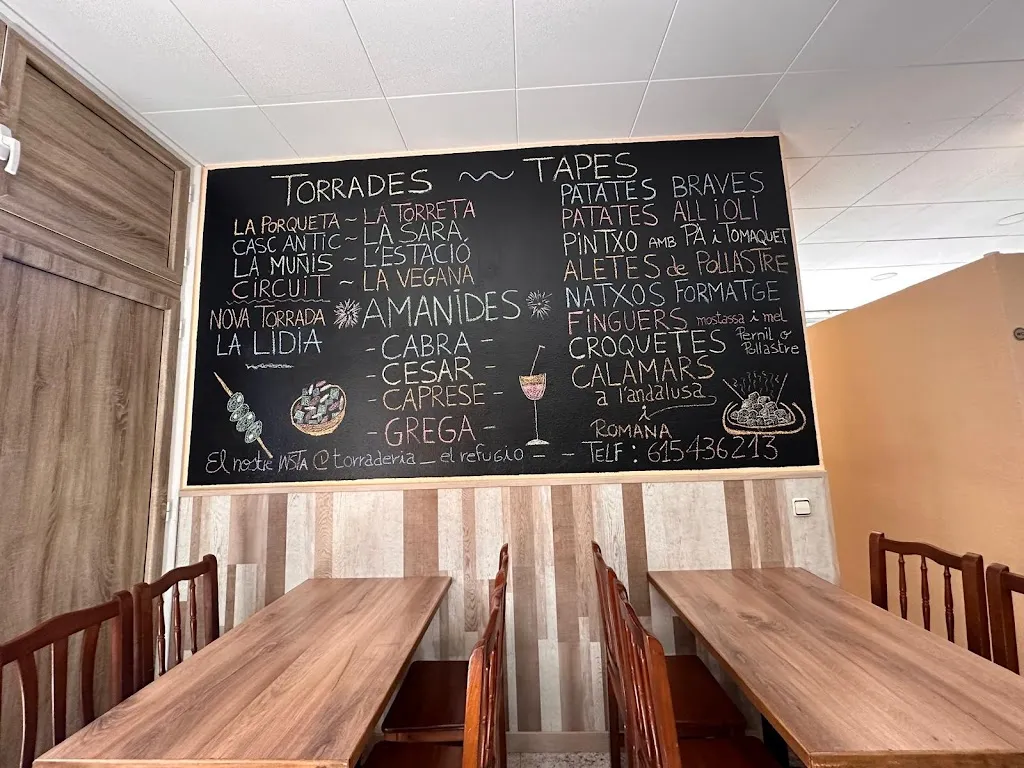 TORRADES ~ TAPES
LA PORQUETA ~ LA TORRETA
CASC ANTIC ~ LA SARA
LA MUÑIS ~ L'ESTACIÓ
CIRCUIT ~ LA VEGANA
NOVA TORRADA
LA LIDIA
AMANIDES
- CABRA -
- CESAR -
- CAPRESE -
- GREGA -
PATATES BRAVES
PATATES ALLIOLI
PINTXO AMB PA i TOMAQUET
ALETES de POLLASTRE
NATXOS FORMATGE
FINGUERS mostassa i mel
CROQUETES Pernil o Pollastre
CALAMARS
a l'andalusa
i
ROMANA
El nostre INSTA @torraderia_el refugio - - TELF: 615436213